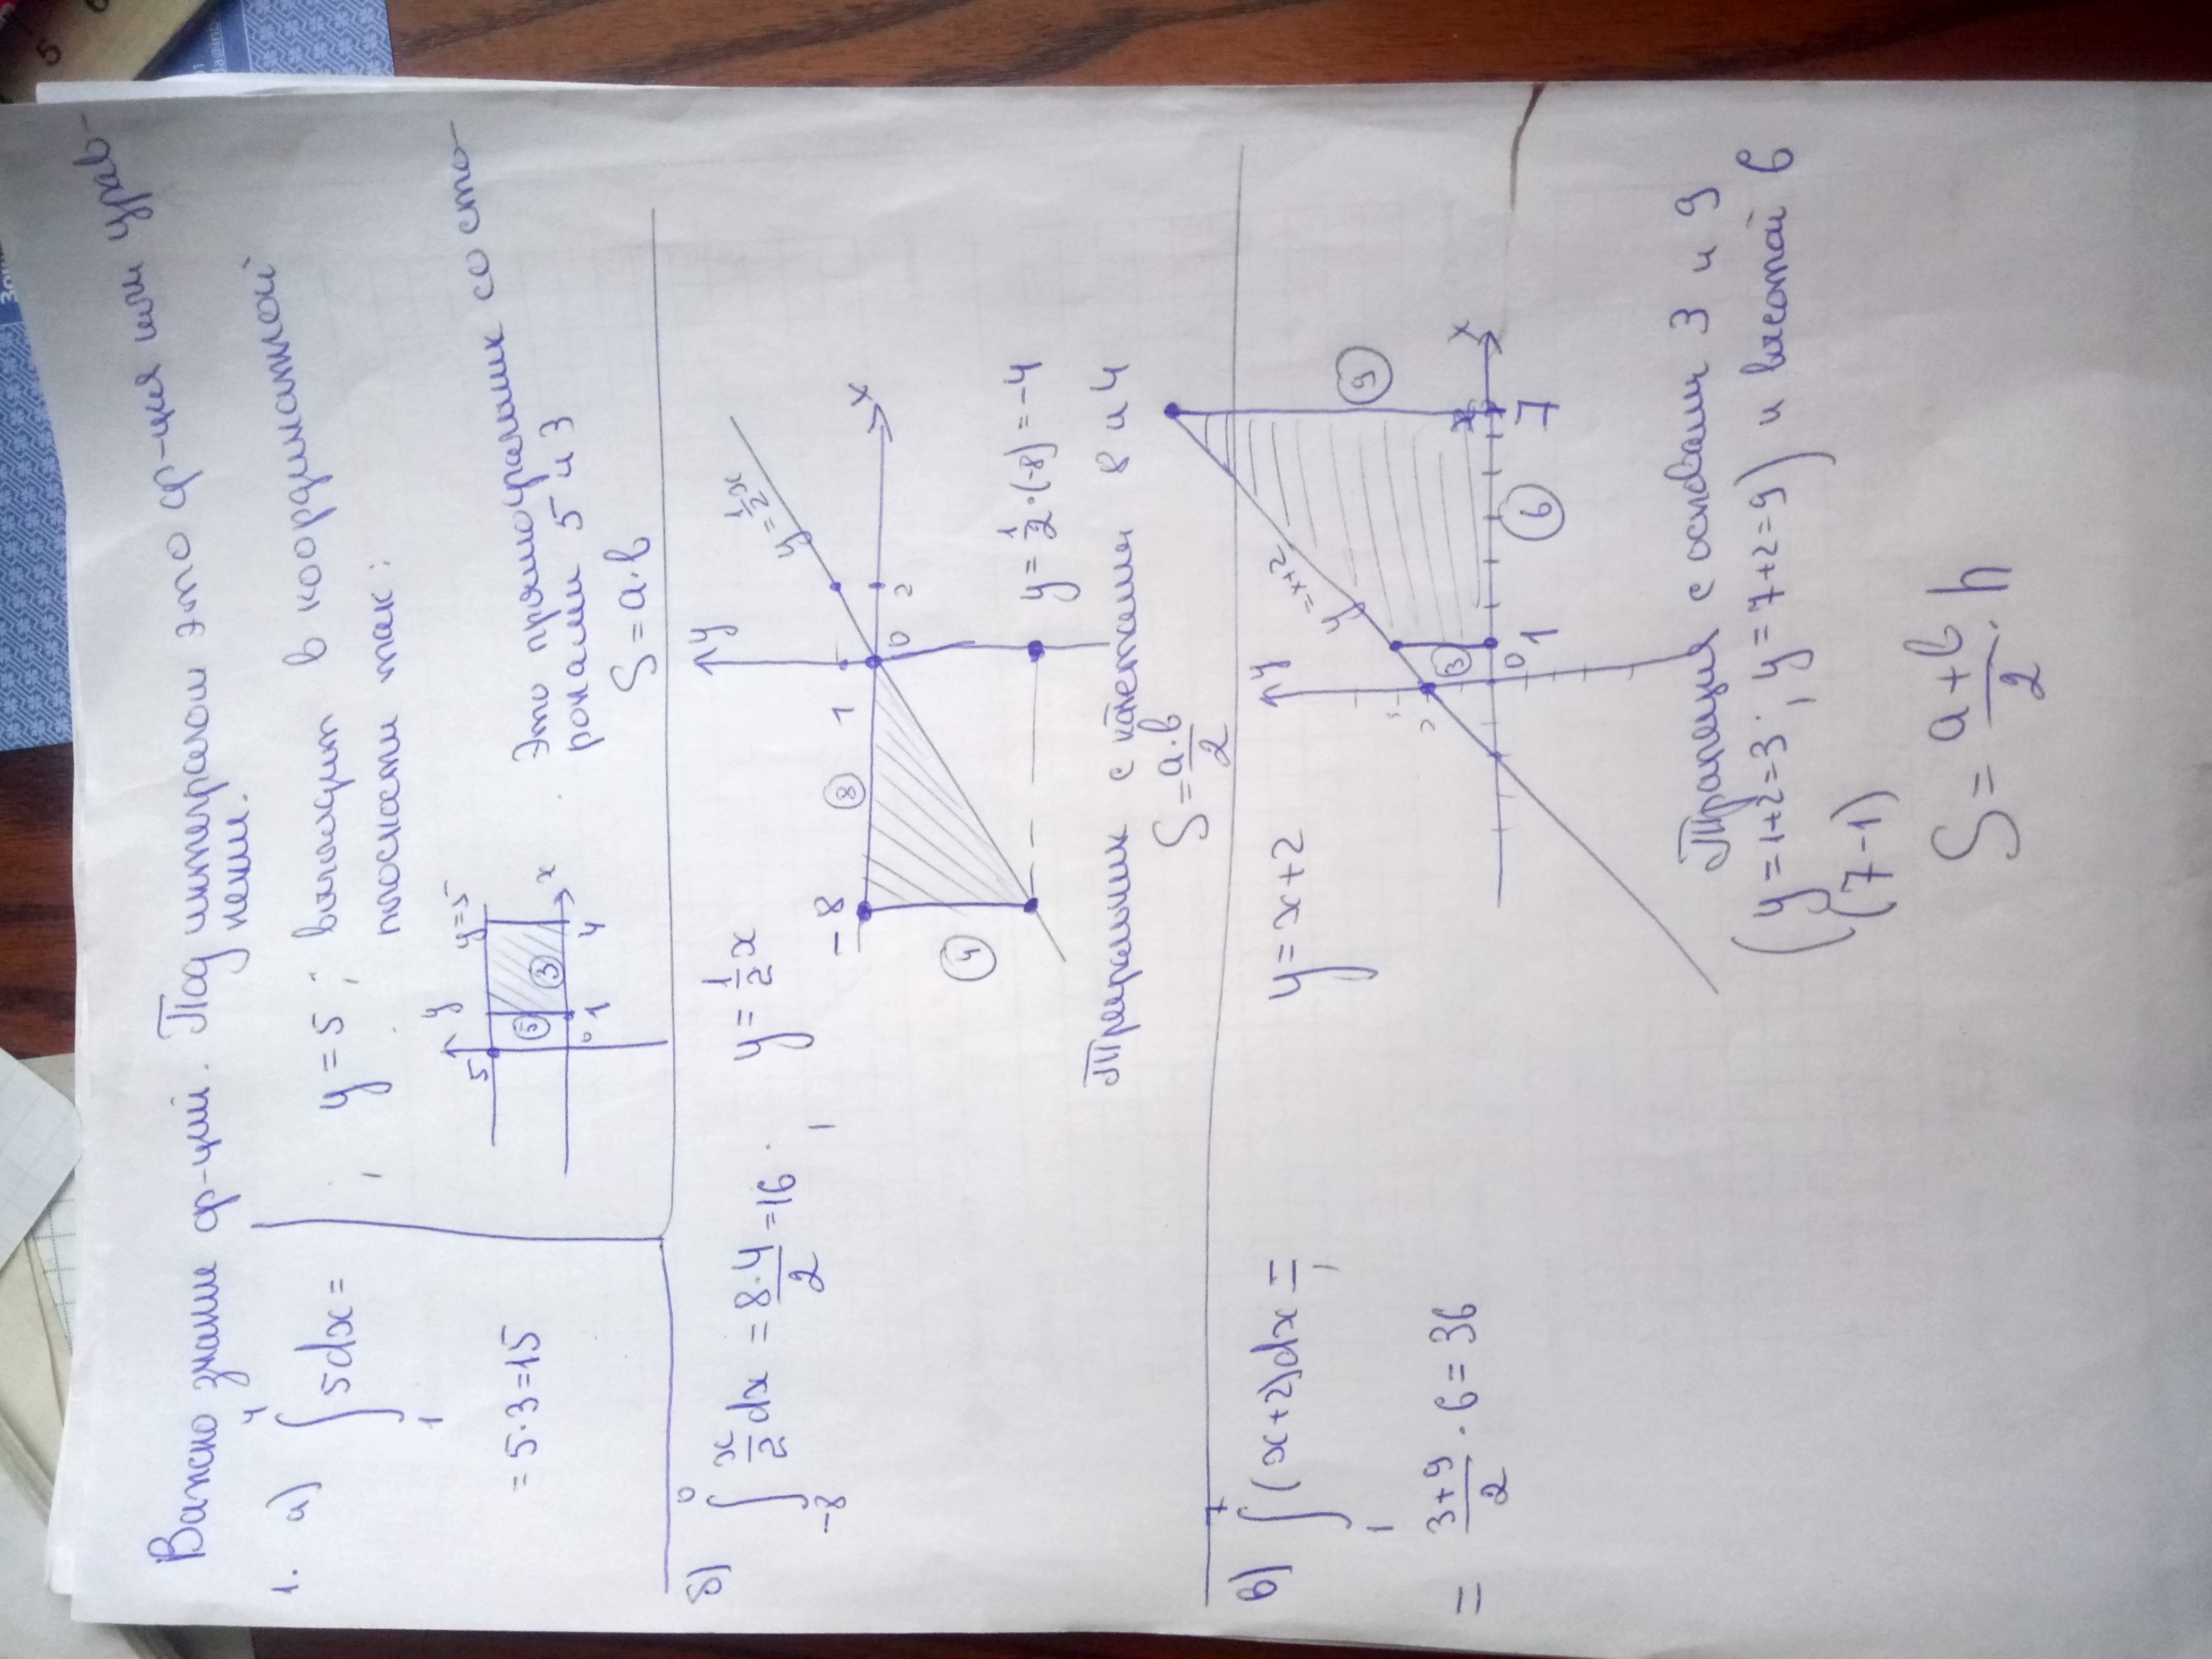 Важно знание ф-ций. Под интегралом это ф-ция или урав-
нение.
1. а) ∫₁⁴ 5dx =
= 5·3=15
y = 5 ; выглядит в координатной
плоскости так:
y
y=5
5
⑤
③
0
1
4
x
Это прямоугольник со сто-
ронами 5 и 3
S = a·b
б) ∫₋₈⁰ x/2 dx = 8·4/2 =16 ; y = 1/2 x
y
y=1/2x
x
-8
⑧
1
0
2
④
y = 1/2·(-8) = -4
Треугольник с катетами 8 и 4
S = a·b/2
в) ∫₁⁷ (x+2)dx =
= 3+9/2 · 6 = 36
y = x+2
y
y=x+2
③
⑨
0
1
⑥
7
x
Трапеция с основан 3 и 9
(y =1+2=3 ; y = 7+2=9) и высотой 6
(7-1)
S = a+b/2 · h